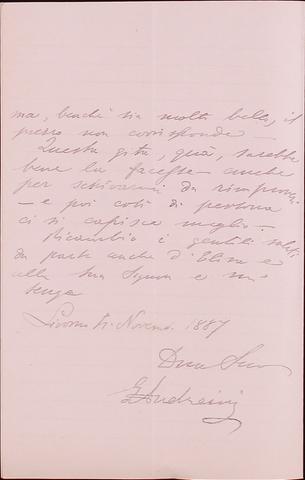 ma, benchè sia molto bella, il
prezzo non corrisponde —
Questa gita, quà, sarebbe
bene la facesse — anche
per schivarmi da rimproveri
— e poi così di persona
ci si capisce meglio.
Ricambio i gentili saluti
da parte anche d'Elisa e
alla sua Signora e mi
tenga
Livorno Novemb. 1887
Devm Suo
GAndreini